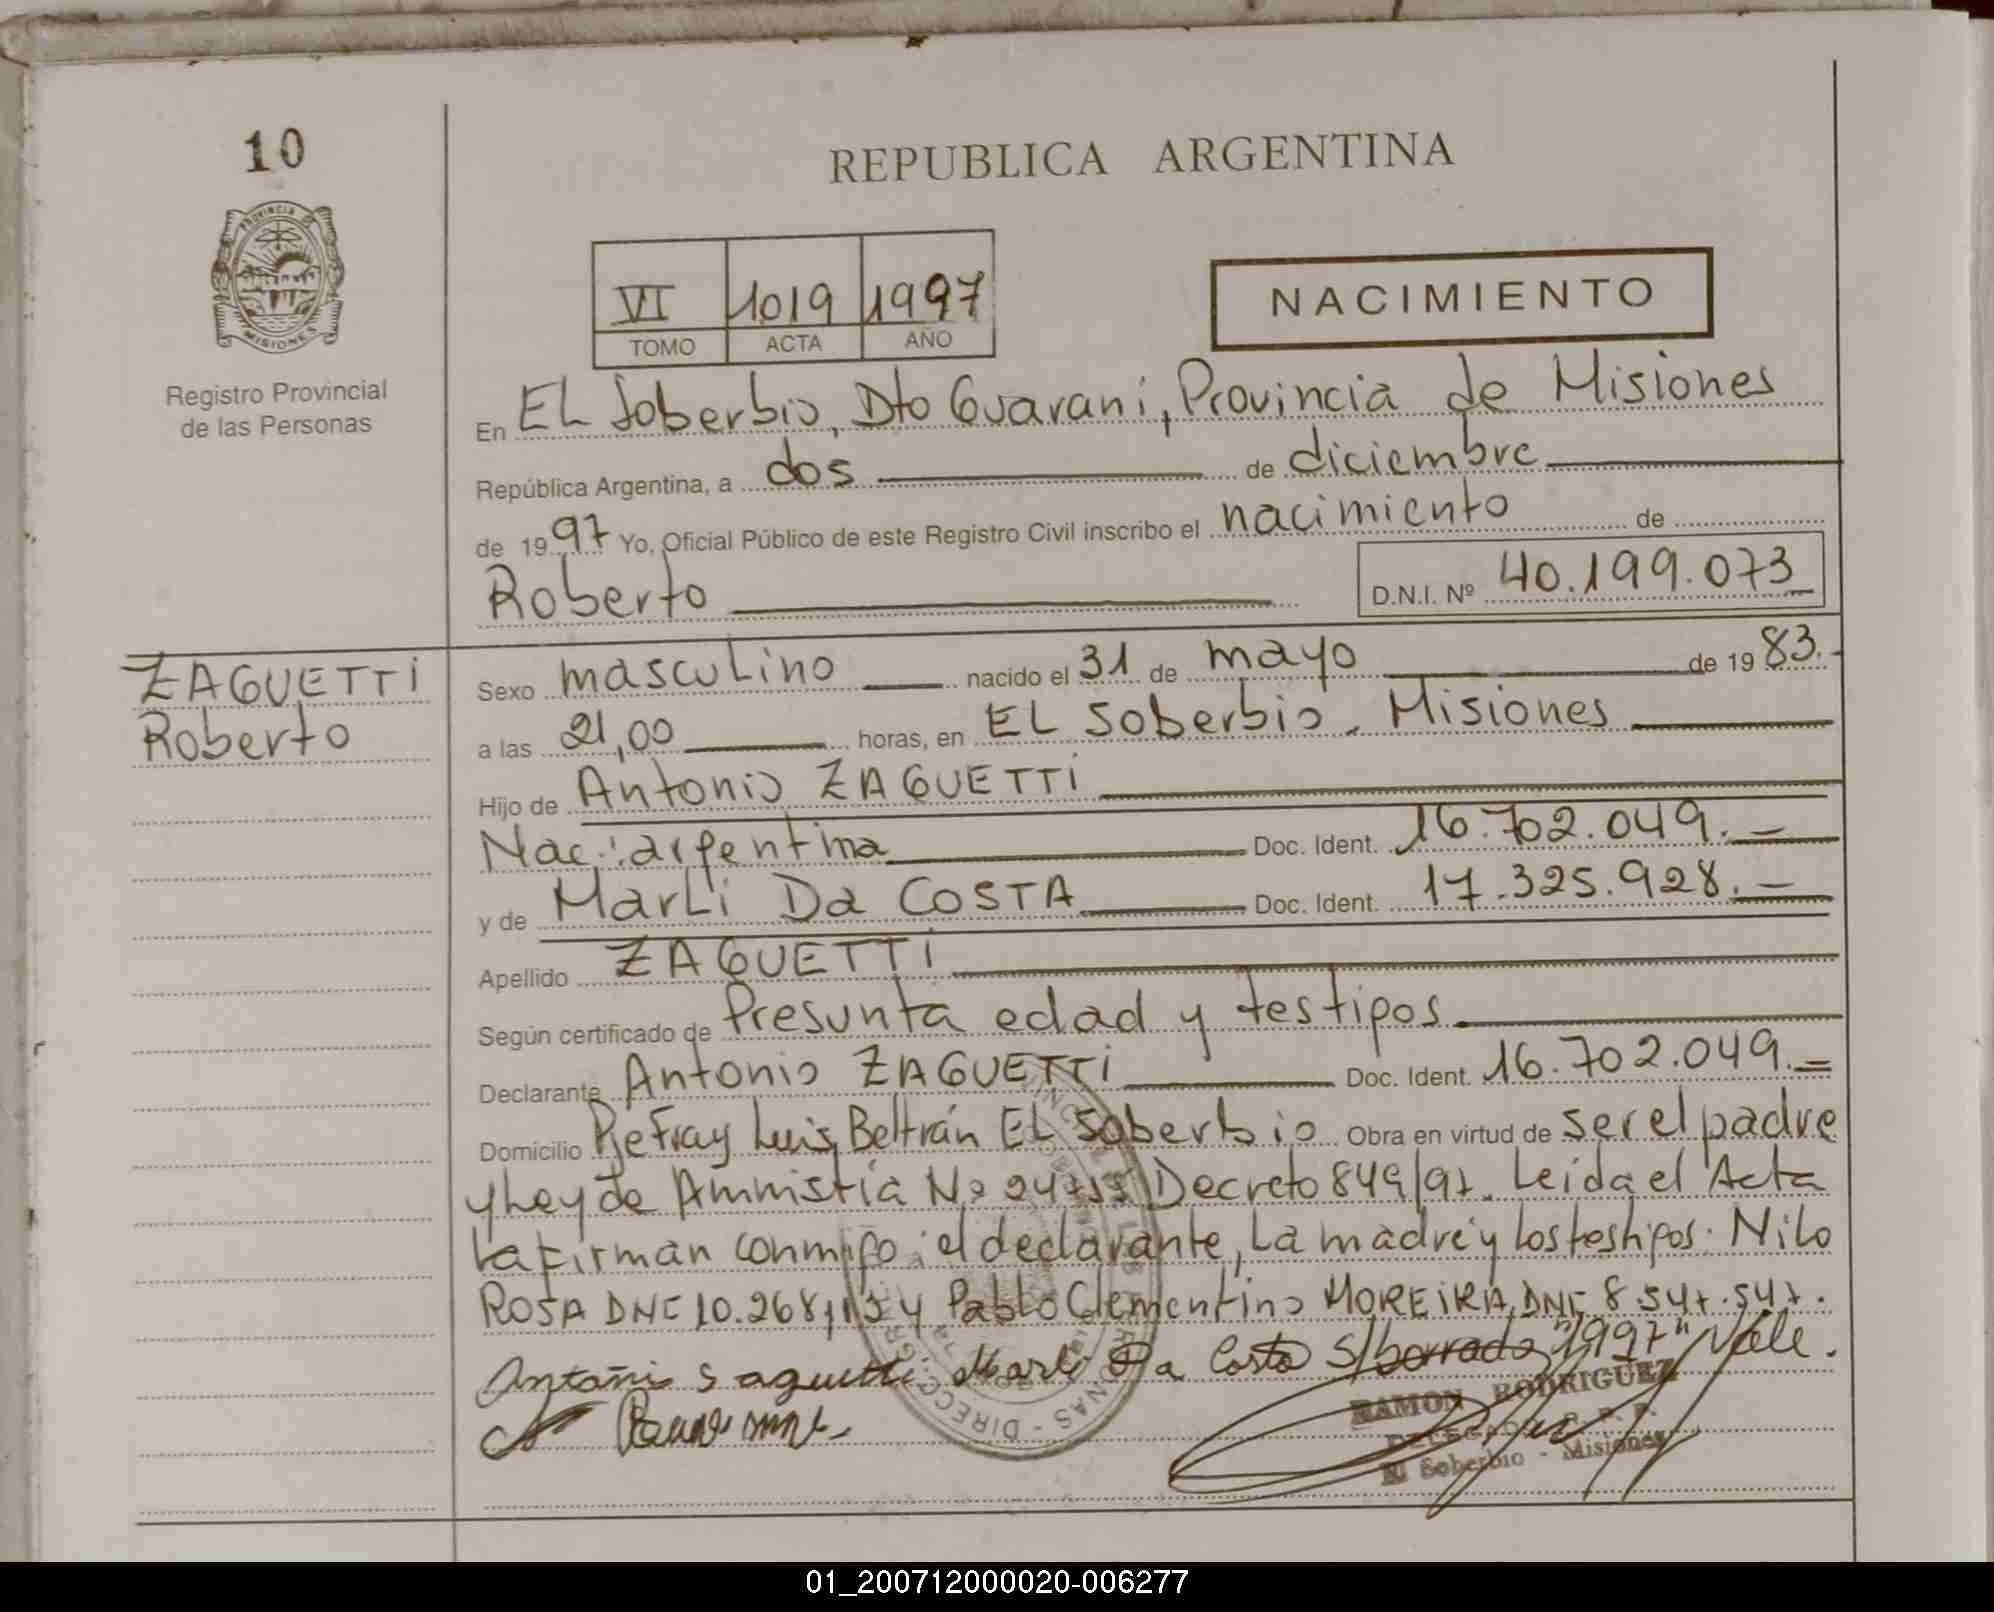 10
REPUBLICA ARGENTINA
PROVINCIA DE
MISIONES
Registro Provincial
de las Personas
VI 1019 1997
TOMO ACTA AÑO
NACIMIENTO
En EL Soberbio, Dto Guarani, Provincia de Misiones
República Argentina, a dos de diciembre
de 1997 Yo, Oficial Público de este Registro Civil inscribo el nacimiento de
Roberto D.N.I. Nº 40.199.073
ZAGUETTi
Roberto
Sexo mascuLino nacido el 31 de mayo de 1983.
a las 21,00 horas, en EL Soberbio, Misiones
Hijo de Antonio ZAGUETTi
Nac: argentina Doc. Ident. 16.702.049.
y de MarLi Da COSTA Doc. Ident. 17.325.928.
Apellido ZAGUETTi
Según certificado de Presunta edad y testigos
Declarante Antonio ZAGUETTi Doc. Ident. 16.702.049.
Domicilio Fray Luis Beltrán EL Soberbio Obra en virtud de ser el padre
y Ley de Amnistía Nº Decreto 849/97. Leida el Acta
La firman conmigo: el declarante, La madre y los testigos: NiLo
ROSA DNI 10.268.113 y Pablo Clementino MOREiRA, DNI 8.547.547.
Antoñio Saguetti Marli Da Costa S/borrado "1997" Vale.
RAMON RODRIGUEZ
DELEGADO R. P. P.
El Soberbio - Misiones
01_200712000020-006277